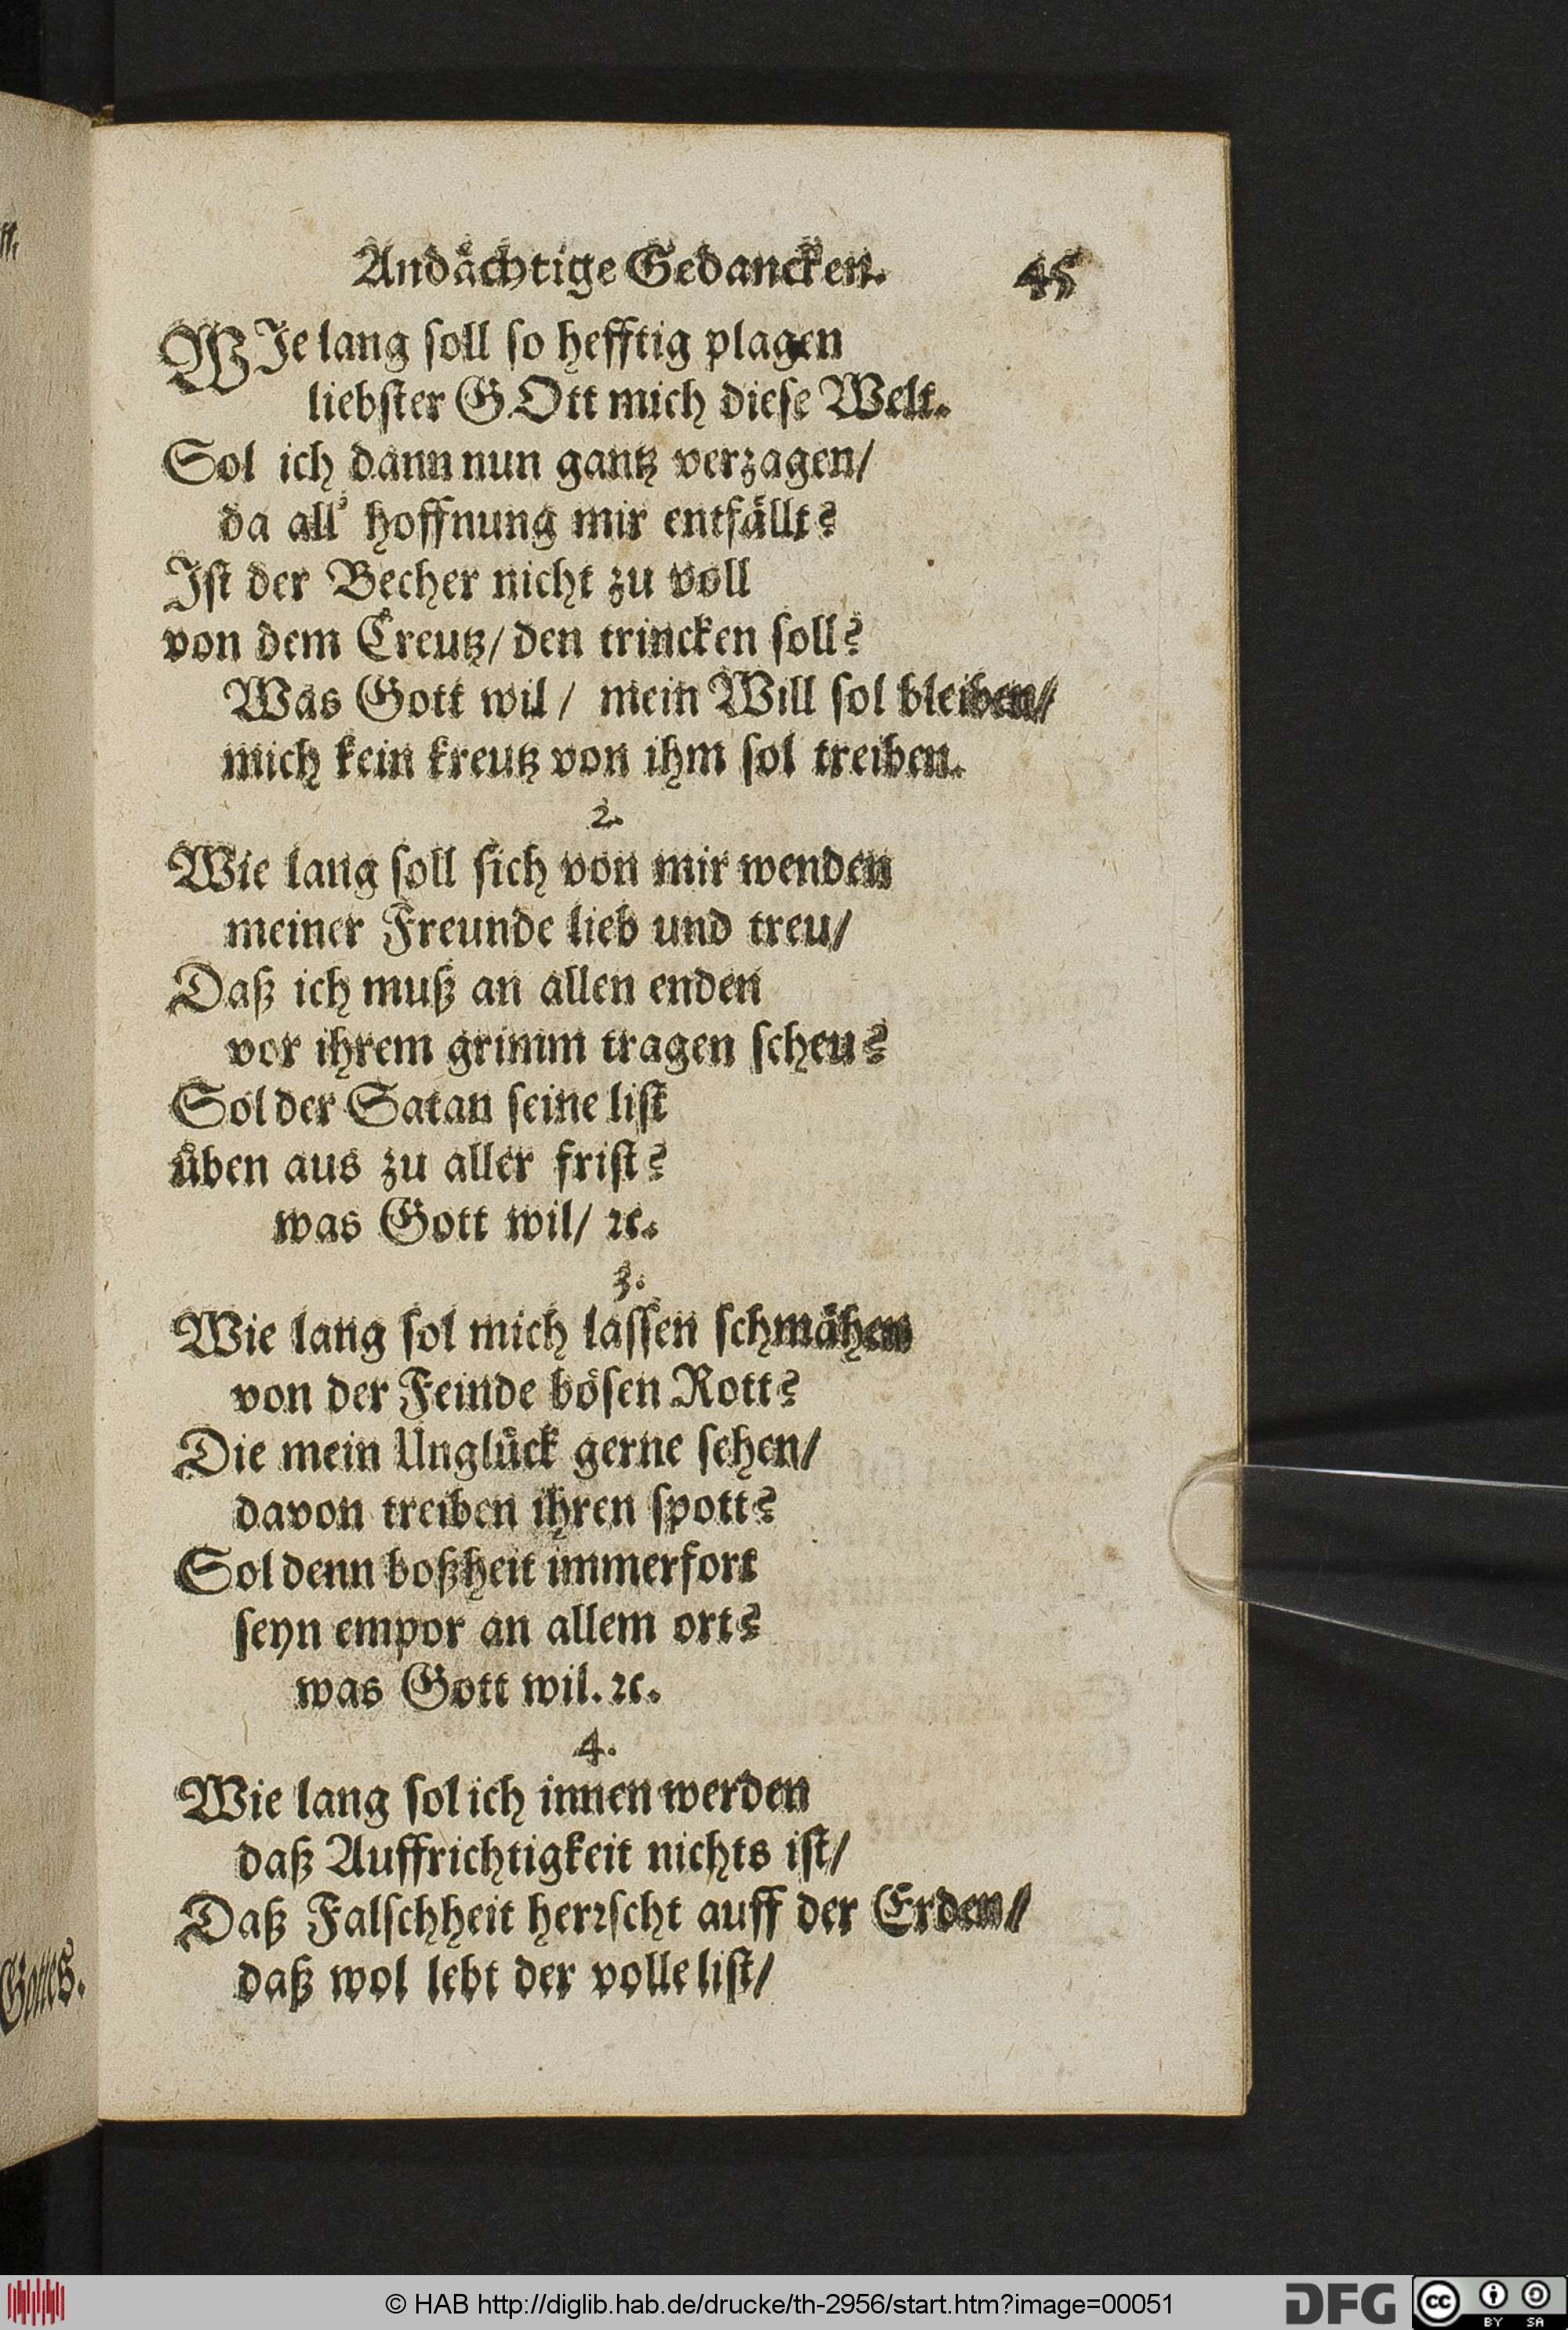 Andächtige Gedancken. 45
WIe lang soll so hefftig plagen
liebster GOtt mich diese Welt.
Sol ich dann nun gantz verzagen/
da all' hoffnung mir entfällt?
Ist der Becher nicht zu voll
von dem Creutz/ den trincken soll?
Was Gott wil/ mein Will sol bleiben/
mich kein kreutz von ihm sol treiben.
2.
Wie lang soll sich von mir wenden
meiner Freunde lieb und treu/
Daß ich muß an allen enden
vor ihrem grimm tragen scheu?
Sol der Satan seine list
üben aus zu aller frist?
was Gott wil/ ꝛc.
3.
Wie lang sol mich lassen schmähen
von der Feinde bösen Rott?
Die mein Unglück gerne sehen/
davon treiben ihren spott?
Sol denn boßheit immerfort
seyn empor an allem ort?
was Gott wil. ꝛc.
4.
Wie lang sol ich innen werden
daß Auffrichtigkeit nichts ist/
Daß Falschheit herꝛscht auff der Erden/
daß wol lebt der volle list/
Gottes.
© HAB http://diglib.hab.de/drucke/th-2956/start.htm?image=00051
DFG
cc BY SA